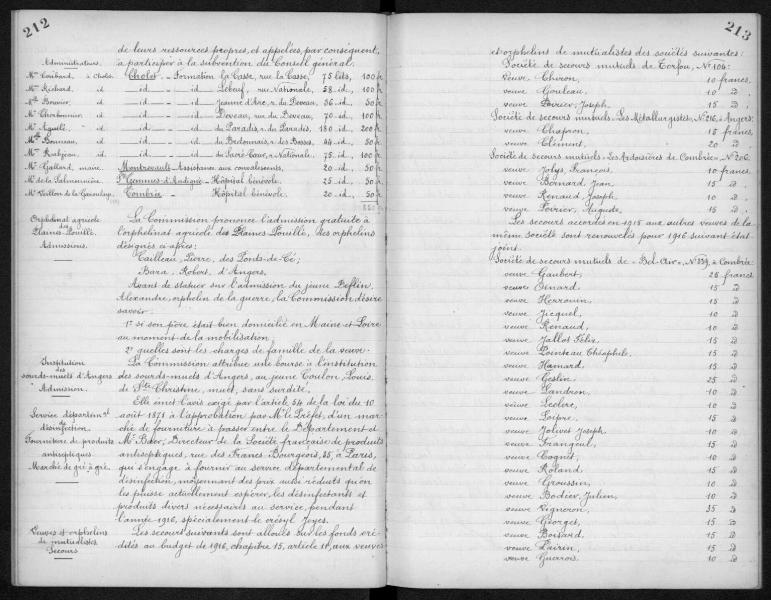 212
de leurs ressources propres, et appelées, par conséquent,
à participer à la subvention du Conseil général:
Administrateurs.
Mme Coubard, à Cholet. Cholet. - Formation la Casse, rue la Casse, 75 lits, 100 fr.
Mme Richard, id — id — id — Lebeuf, rue Nationale, 58 id., 100 fr.
Bouvier, id — id — id — Jeanne d'Arc, r. du Deveau, 56 id., 50 fr.
Mr Charbonnier, id — id — id — Deveau, rue du Deveau, 70 id., 100 fr.
id — id — id — du Paradis, r. du Paradis, 180 id., 200 fr.
Bonneau, id — id — id — du Bretonnais, r. des Bosses, 44 id., 50 fr.
id — id — id — du Sacré-Cœur, r. Nationale, 75 id., 100 fr.
Mr Gallard, maire. Montrevault - Assistance aux convalescents, 20 id., 50 fr.
Mr de la Salmonnière. Ste Gemmes-d'Andigné - Hôpital bénévole. 25 id., 50 fr.
Combrée - Hôpital bénévole. 20 id., 50 fr.
850 fr.
Orphelinat agricole
des
Plaines Pouillé.
Admissions.
La Commission prononce l'admission gratuite à
l'orphelinat agricole des Plaines Pouillé, des orphelins
désignés ci-après:
Cailleau, Pierre, des Ponts-de-Cé;
Bara, Robert, d'Angers.
Avant de statuer sur l'admission du jeune Beflin,
Alexandre, orphelin de la guerre, la Commission désire
savoir:
1° si son père était bien domicilié en Maine et Loire
au moment de la mobilisation,
2° quelles sont les charges de famille de la veuve.
Institution
des
sourds-muets d'Angers
Admission.
La Commission attribue une bourse à l'institution
des sourds-muets d'Angers, au jeune Coulon, Louis,
de Ste Christine, muet, sans surdité.
Service départemental
de
désinfection
Fourniture de produits
antiseptiques
Marché de gré à gré.
Elle émet l'avis exigé par l'article 54 de la loi du 10
août 1871 à l'approbation par Mr le Préfet, d'un mar-
ché de fourniture à passer entre le Département et
Mr Baer, Directeur de la Société française de produits
antiseptiques, rue des Francs Bourgeois, 35, à Paris,
qui s'engage à fournir au service départemental de
désinfection, moyennant des prix aussi réduits qu'on
les puisse actuellement espérer, les désinfectants et
produits divers nécessaires au service, pendant
l'année 1916, spécialement le crésyl Jeyes.
Veuves et orphelins
de mutualistes
Secours
Les secours suivants sont alloués sur les fonds cré-
dités au budget de 1916, chapitre 15, article 11, aux veuves
213
et orphelins de mutualistes des sociétés suivantes:
Société de secours mutuels de Torfou, No 106:
Veuve Chiron, 10 francs.
veuve Gouleau, 10 d.
veuve Poirier, Joseph. 15 d.
Société de secours mutuels "Les Métallurgistes" No 216, à Angers:
veuve Chapron, 15 francs.
veuve Clément, 20 d.
Société de secours mutuels "Les Ardoisières de Combrée" No 206.
veuve Jolys, François, 10 francs.
veuve Bernard, Jean 15 d.
veuve Renaud, Joseph 10 d.
veuve Poirier, Auguste, 15 d.
Les secours accordés en 1915 aux autres veuves de la
même société sont renouvelés pour 1916 suivant état
joint.
Société de secours mutuels de "Bel-Air", No 339, à Combrée:
veuve Gaubert, 25 francs
veuve Esnard, 15 d
veuve Herrouin, 15 d
veuve Jicquel, 10 d
veuve Renaud, 10 d
veuve Jallot Félix, 15 d
veuve Pointeau Théophile, 15 d
veuve Hamard, 15 d
veuve Geslin, 25 d
veuve Landron, 10 d
veuve Leclerc, 10 d
veuve Loipre, 15 d
veuve Jolivet Joseph, 10 d
veuve Frangeul, 15 d
veuve Cognet, 10 d
veuve Roland, 15 d
veuve Groussin, 10 d
veuve Bodier, Julien, 10 d
veuve Vigneron, 35 d
veuve Georges, 15 d
veuve Boisard, 15 d
veuve Pairin, 15 d
veuve Guerrois, 10 d